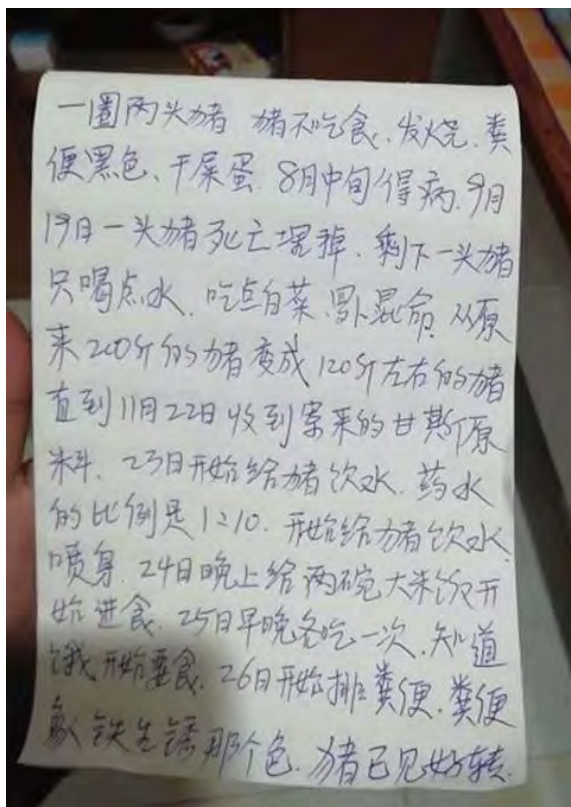 一圈两头猪、猪不吃食、发烧、粪
便黑色、干屎蛋、8月中旬得病、9月
19日一头猪死亡埋掉、剩下一头猪
只喝点水、吃点白菜、萝卜混命、从原
来200斤的猪变成120斤左右的猪
直到11月22日收到寄来的甘斯原
料、23日开始给猪饮水、药水
的比例是1:10、开始给猪饮水、
喷身、24日晚上给两碗大米饭开
始进食、25日早晚各吃一次、知道
饿、开始要食、26日开始排粪便、粪便
象铁生锈那个色、猪已见好转、